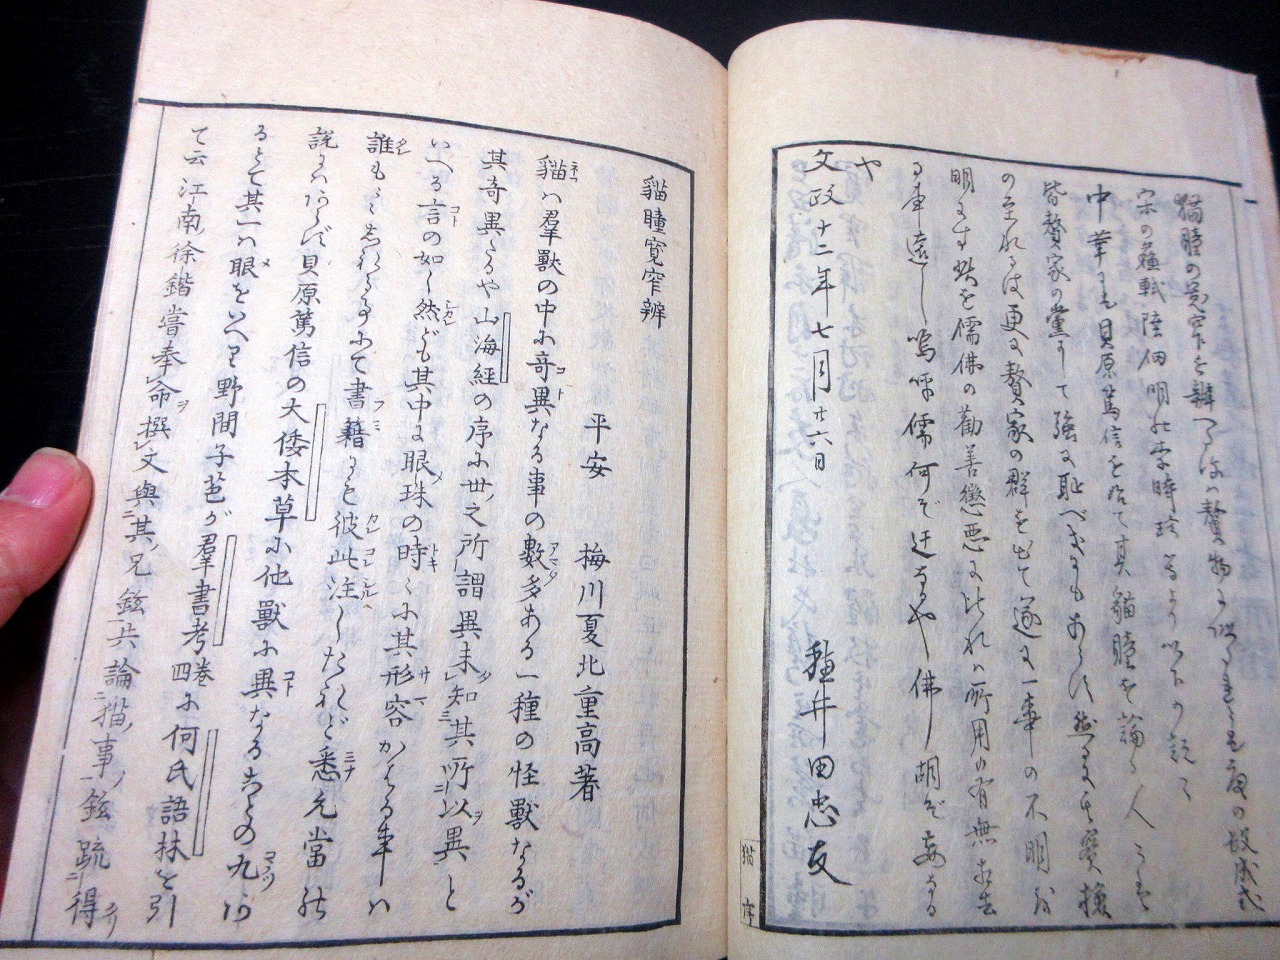 猫瞳の
宋の蘓軾陸佃明の李時珍
中華にも貝原篤信を始て其猫瞳を論る人
皆贅家の黨にして強に恥べきにもあらず然るに
の至れるは更に贅家の群を出て遂に一事の不明は
明にす此を儒佛の勸善懲悪に比れハ所用の有無
る事遠し嗚呼儒何ぞ迂なるや佛胡ぞ妄なる
や
文政十二年七月廿六日　穂井田忠友
猫　序
貓瞳寛窄辨
平安　梅川夏北重高著
貓ハ羣獸の中に奇異なる事の數多ある一種の怪獸なるが
其奇異たるや山海經の序に世之所謂異未知其所以異と
いへる言の如し然ども其中に眼珠の時々に其形容かはる事ハ
誰もよくしれることにて書籍にも彼此注したれど悉允當の
説にハあらず貝原篤信の大倭本草に他獸に異なることの九ツあ
るとて其一ハ眼をいへり野間子苞が羣書考卷四に何氏語林を引
て云江南徐鍇嘗奉命撰文與其兄鉉共論猫事鉉疏得